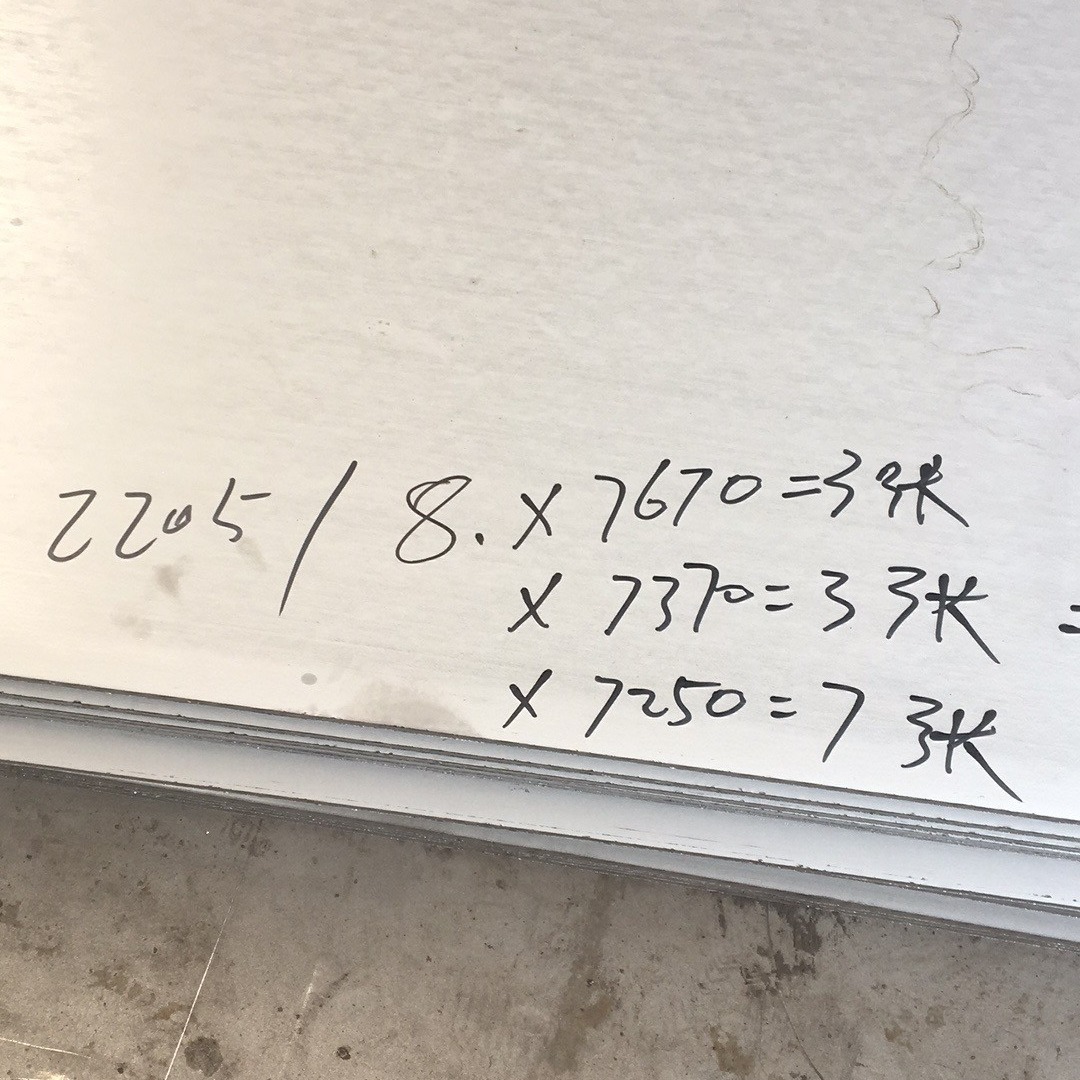 2205 / 8. × 7670 = 3 张
× 7370 = 3 张 =
× 7250 = 7 张